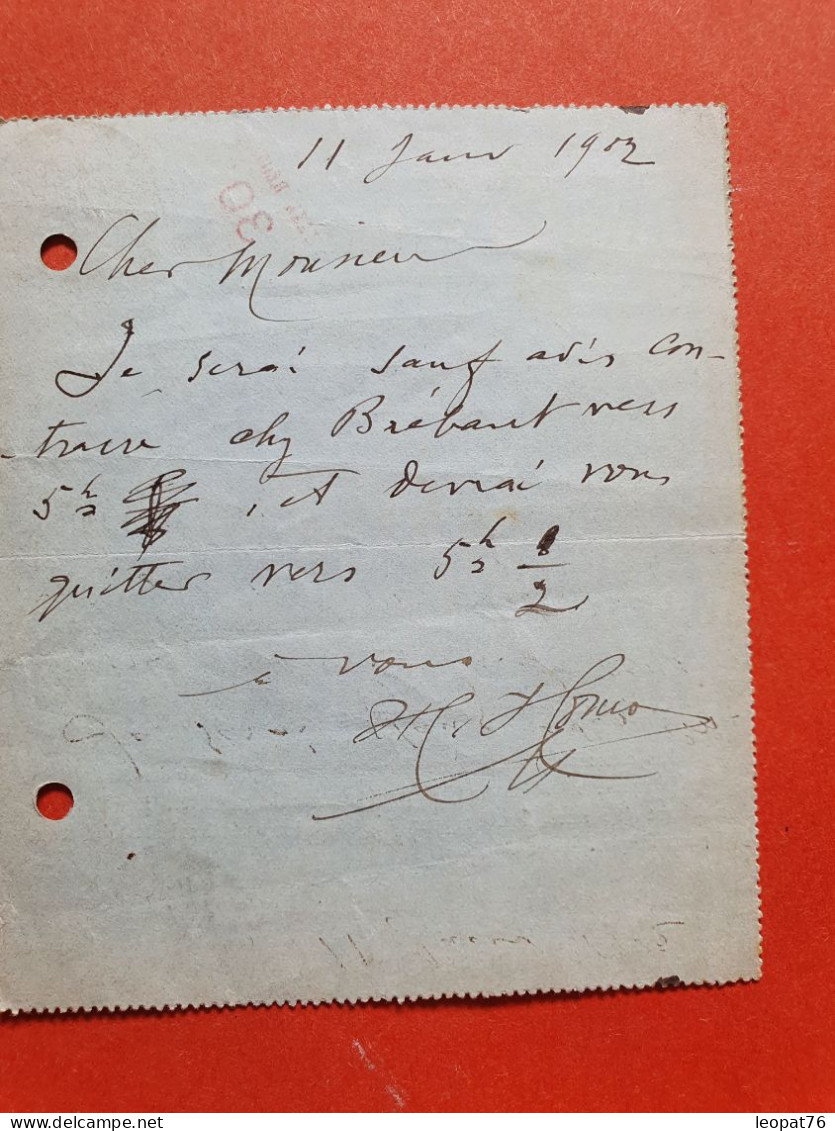 11 Janv 1902
30
Cher Monsieur
Je serai sauf avis con-
traire chez Brébant vers
5h , et devrai vous
quitter vers 5h 1/2
à vous
leopat76